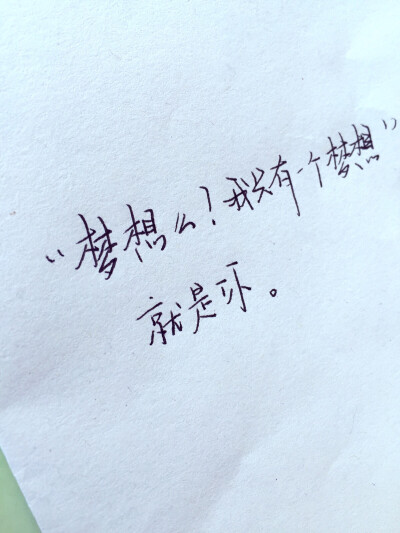 “梦想么!我只有一个梦想”
就是你。